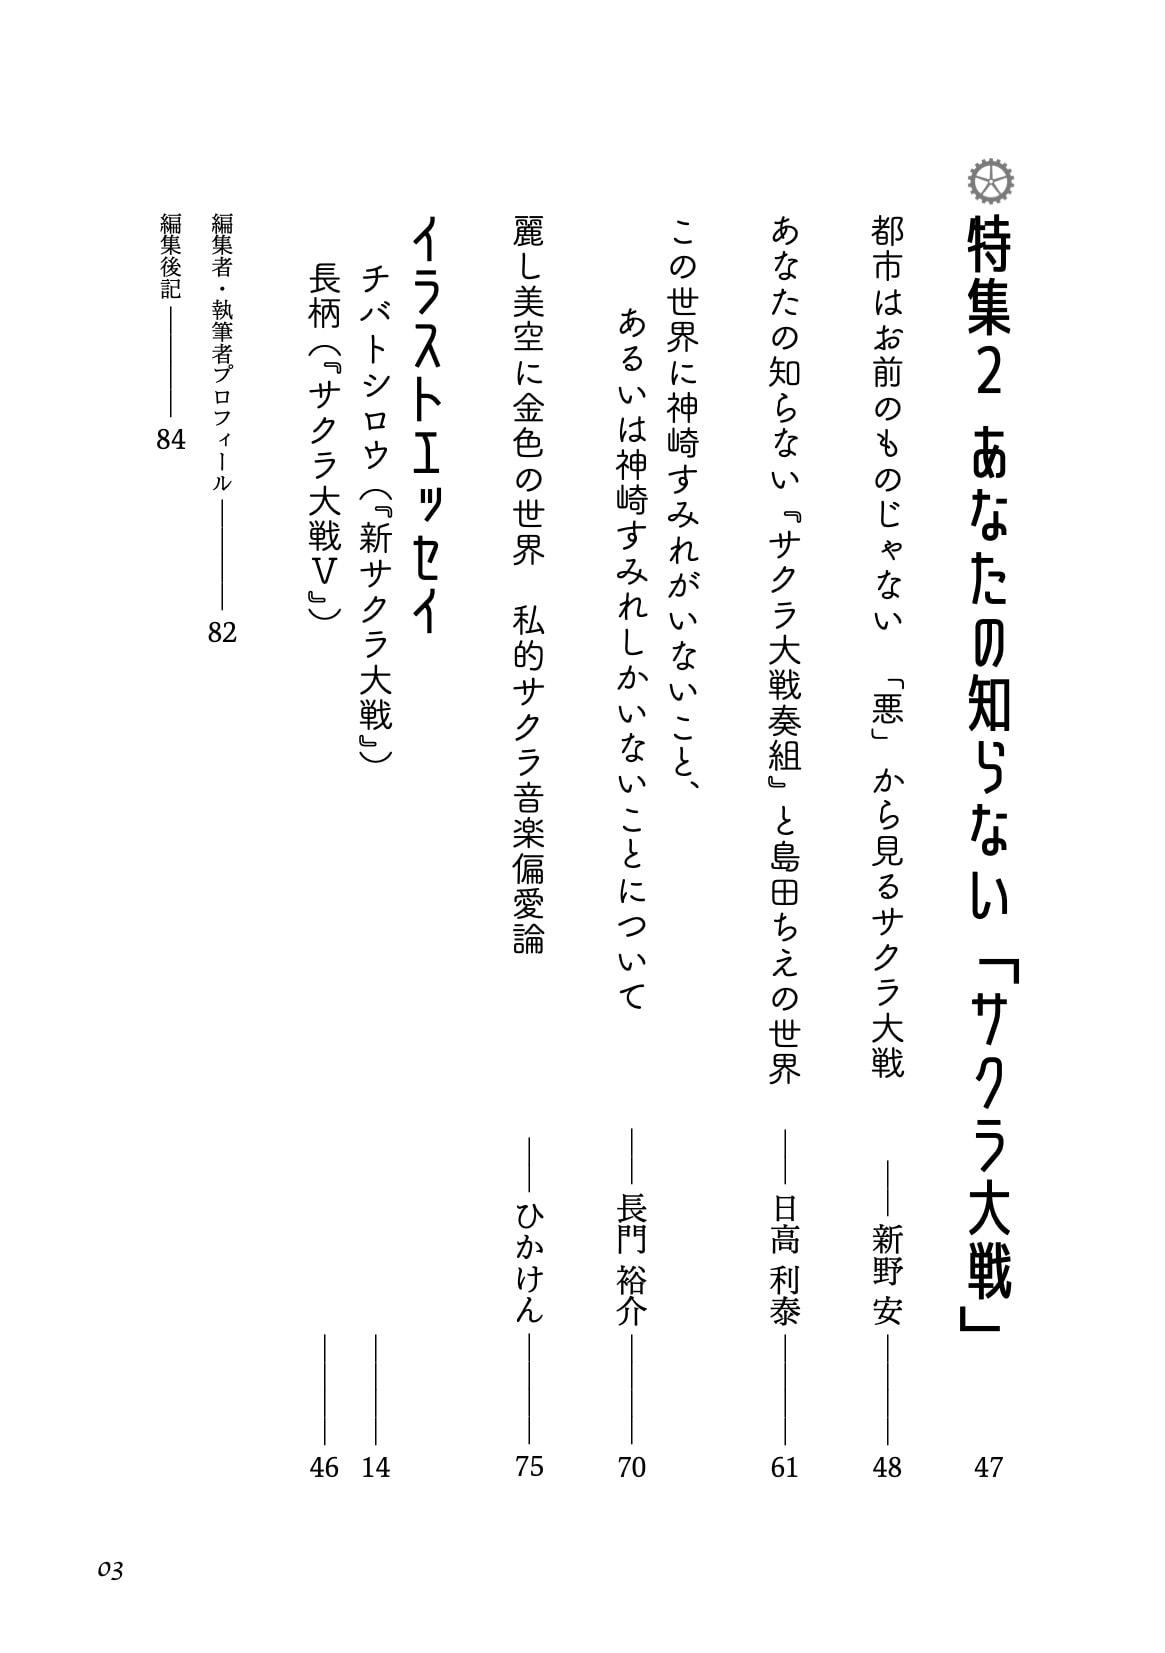 特集2 あなたの知らない「サクラ大戦」 47
都市はお前のものじゃない 「悪」から見るサクラ大戦 ――新野 安―――― 48
あなたの知らない『サクラ大戦奏組』と島田ちえの世界 ――日高 利泰―――― 61
この世界に神崎すみれがいないこと、
あるいは神崎すみれしかいないことについて ――長門 裕介―――― 70
麗し美空に金色の世界 私的サクラ音楽偏愛論 ――ひかけん―――― 75
イラストエッセイ
チバトシロウ（『新サクラ大戦』） ―――― 14
長柄（『サクラ大戦Ｖ』） ―――― 46
編集者・執筆者プロフィール―――― 82
編集後記―――― 84
03